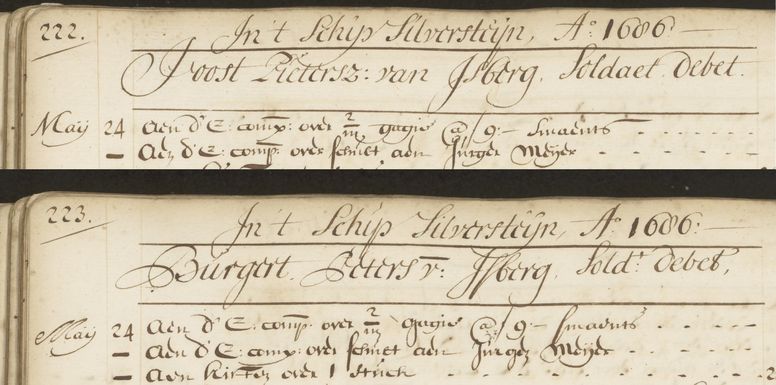 222.
In't Schip Silversteijn, Aº 1686:
Joost Pietersz: van Jsberg. Soldaet. Debet.
May 24 Aen d'E: comp: over 2/m gagie @ ƒ 9:- smaents
— Aen d'E: comp: over schult aen Jurgen Meyer
223.
In't Schip Silversteijn, Aº 1686:
Burgert Peters v: Jsberg. Sold:t Debet,
May 24 Aen d'E: comp: over 2/m gagie @ ƒ 9:- smaents
— Aen d'E: comp: over schult aen Jurgen Meyer
— Aen kisten over 1 stuck